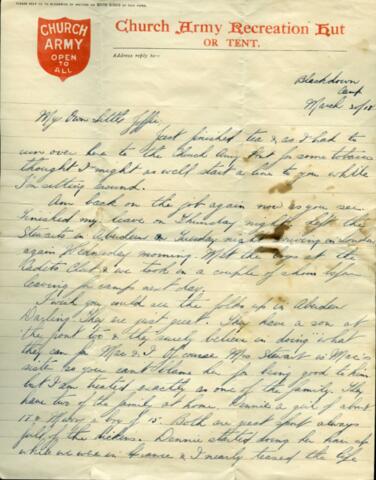 PLEASE HELP US TO ECONOMISE BY WRITING ON BOTH SIDES OF THIS FORM.
CHURCH
ARMY
OPEN
TO
ALL
Church Army Recreation Hut
OR TENT.
Address reply to—
Blackdown
Camp
March 20/18
My Own Little Effie,
Just finished tea & as I had to
run over here to the Church Army Hut for some tobacco
thought I might as well start a line to you while
I'm sitting around.
Am back on the job again now as you see.
Finished my leave on Thursday night & left the
Stewarts in Aberdeen on Tuesday night arriving in London
again Wednesday morning. Met the boys at the
& we took in a couple of shows before
leaving for camp next day.
I wish you could see the folks up in Aberdeen
Darling they are just great. They have a son at
the front too & they surely believe in doing what
they can for Mac & I. Of course Mrs. Stewart is Mac's
sister so you can't blame her for being good to him
but I am treated exactly as one of the family. They
have two of the family at home. Dennie a girl of about
17 & Harry a boy of 15. Both are great sport always
full of the dickens. Dennie started doing her hair up
while we were in France & I nearly teased the life